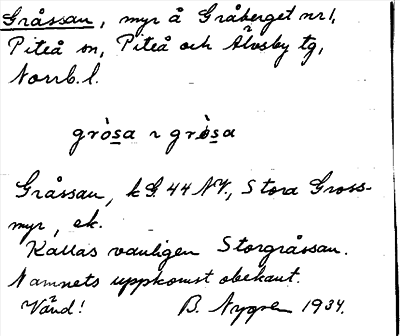 Gråssan, myr å Gråberget nr 1,
Piteå sn, Piteå och Älvsby tg,
Norrb. l.
gròsa ~ gròsa
Gråssan, k G. 44 NV, Stora Gross-
myr, ek.
Kallas vanligen Storgråssan.
Namnets uppkomst obekant.
Vänd! B. Nygren 1934.